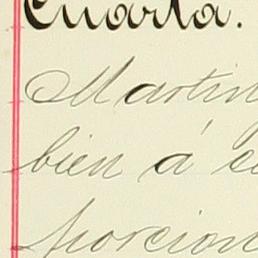 Cuarta.
Martin
bien á
porcion